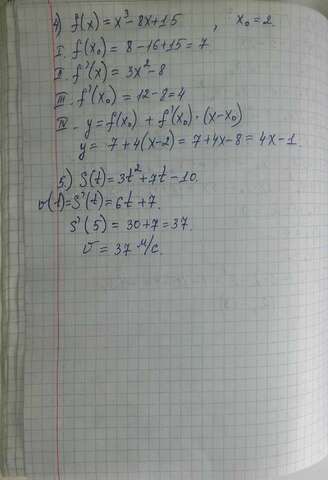 4) f(x) = x³ - 8x + 15 , x₀ = 2.
I. f(x₀) = 8 - 16 + 15 = 7
II. f'(x) = 3x² - 8
III. f'(x₀) = 12 - 8 = 4
IV. y = f(x₀) + f'(x₀) · (x - x₀)
y = 7 + 4(x - 2) = 7 + 4x - 8 = 4x - 1.
5.) S(t) = 3t² + 7t - 10.
v(t) = S'(t) = 6t + 7.
S'(5) = 30 + 7 = 37.
v = 37 м/с.